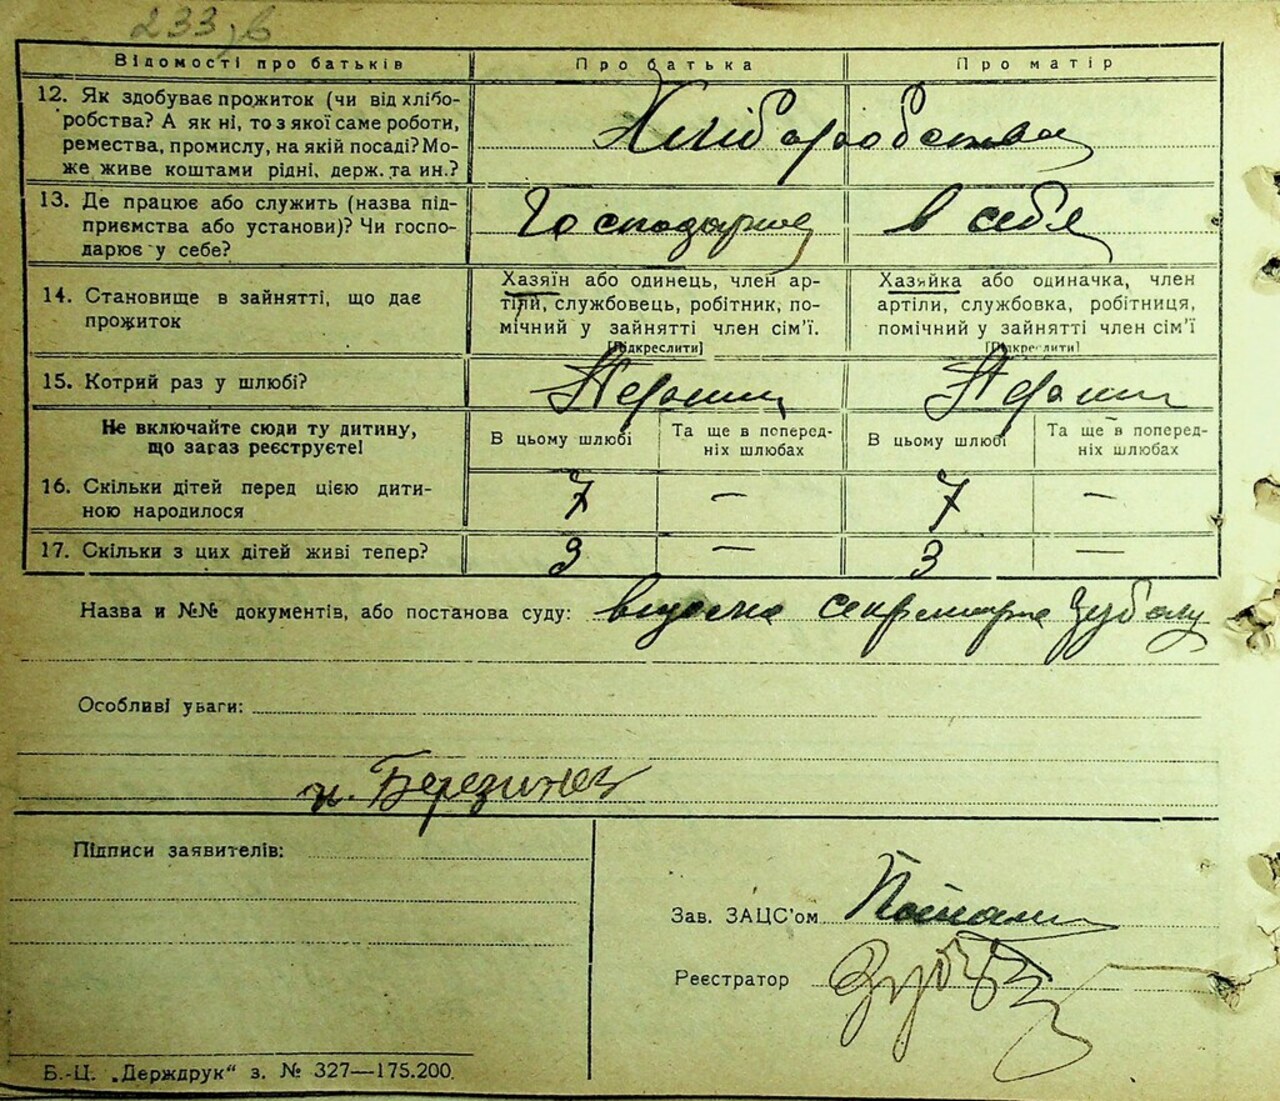 233,в
Відомості про батьків Про батька Про матір
12. Як здобуває прожиток (чи від хлібо-
робства? А як ні, то з якої саме роботи,
ремества, промислу, на якій посаді? Мо-
же живе коштами рідні, держ. та ин.?
Хліборобства
13. Де працює або служить (назва під-
приємства або установи)? Чи госпо-
дарює у себе?
Господарює в себя
14. Становище в зайнятті, що дає
прожиток
Хазяїн або одинець, член ар-
тіли, службовець, робітник, по-
мічний у зайнятті член сім'ї.
[Підкреслити]
Хазяйка або одиначка, член
артіли, службовка, робітниця,
помічний у зайнятті член сім'ї
[Підкреслити]
15. Котрий раз у шлюбі?
Первий Первий
Не включайте сюди ту дитину,
що загаз реєструєте!
В цьому шлюбі
Та ще в поперед-
ніх шлюбах
В цьому шлюбі
Та ще в поперед-
ніх шлюбах
16. Скільки дітей перед цією дити-
ною народилося
7 — 7 —
17. Скільки з цих дітей живі тепер?
3 — 3 —
Назва и №№ документів, або постанова суду: секретаря
Особливі уваги:
Підписи заявителів:
Зав. ЗАЦС'ом
Реєстратор
Б.-Ц. „Держдрук“ з. № 327—175.200.